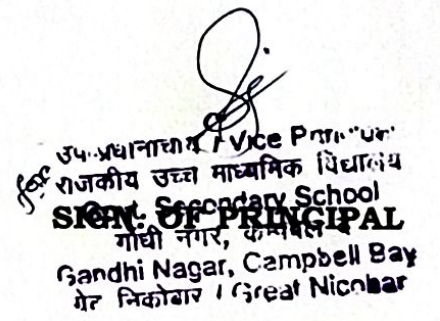 उप-प्रधानाचार्य / Vice Principal
for राजकीय उच्च माध्यमिक विद्यालय
Govt. Secondary School
SIGN. OF PRINCIPAL
गाँधी नगर,
Gandhi Nagar, Campbell Bay
ग्रेट निकोबार / Great Nicobar